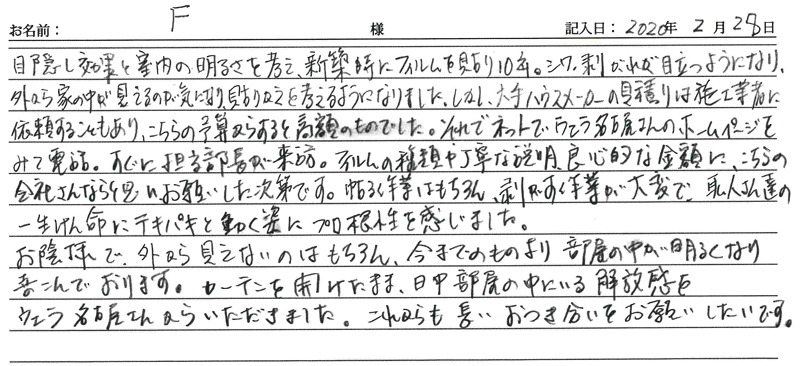 お名前： F 様 記入日： 2020年 2月 28日
目隠し効果と室内の明るさを考え、新築時にフィルムを貼り10年。シワ、剥がれが目立つようになり、
外から家の中が見えるのが気になり貼りかえを考えるようになりました。しかし、大手ハウスメーカーの見積りは施工業者に
依頼することもあり、こちらの予算からすると高額のものでした。それでネットでウェラ名古屋さんのホームページを
みて電話。すぐに担当部長が来訪。フィルムの種類や丁寧な説明、良心的な金額に、こちらの
会社さんならと思いお願いした次第です。帖る作業はもちろん、剥がす作業が大変で、職人さん達の
一生けん命にテキパキと動く姿にプロ根性を感じました。
お陰様で、外から見えないのはもちろん、今までのものより部屋の中が明るくなり
喜こんでおります。カーテンを開けたまま、日中部屋の中にいる解放感を
ウェラ名古屋さんからいただきました。これからも長いおつき合いをお願いしたいです。